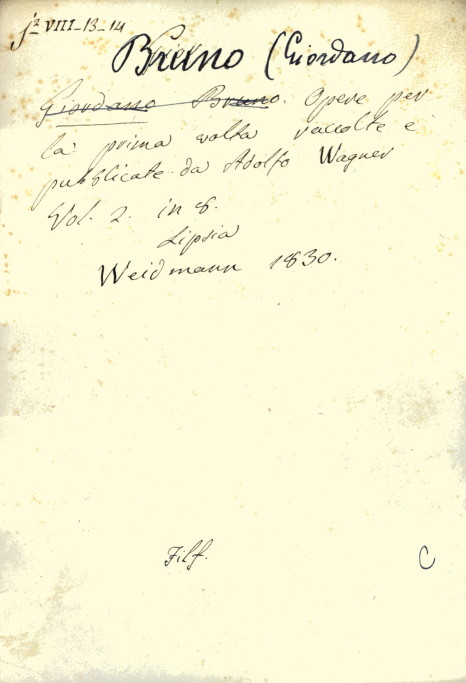 j² VIII_13_14
Bruno (Giordano)
Giordano Bruno. Opere per
la prima volta raccolte e
pubblicate da Adolfo Wagner
Vol. 2. in 8.
Lipsia
Weidmann 1830.
Filf.
C